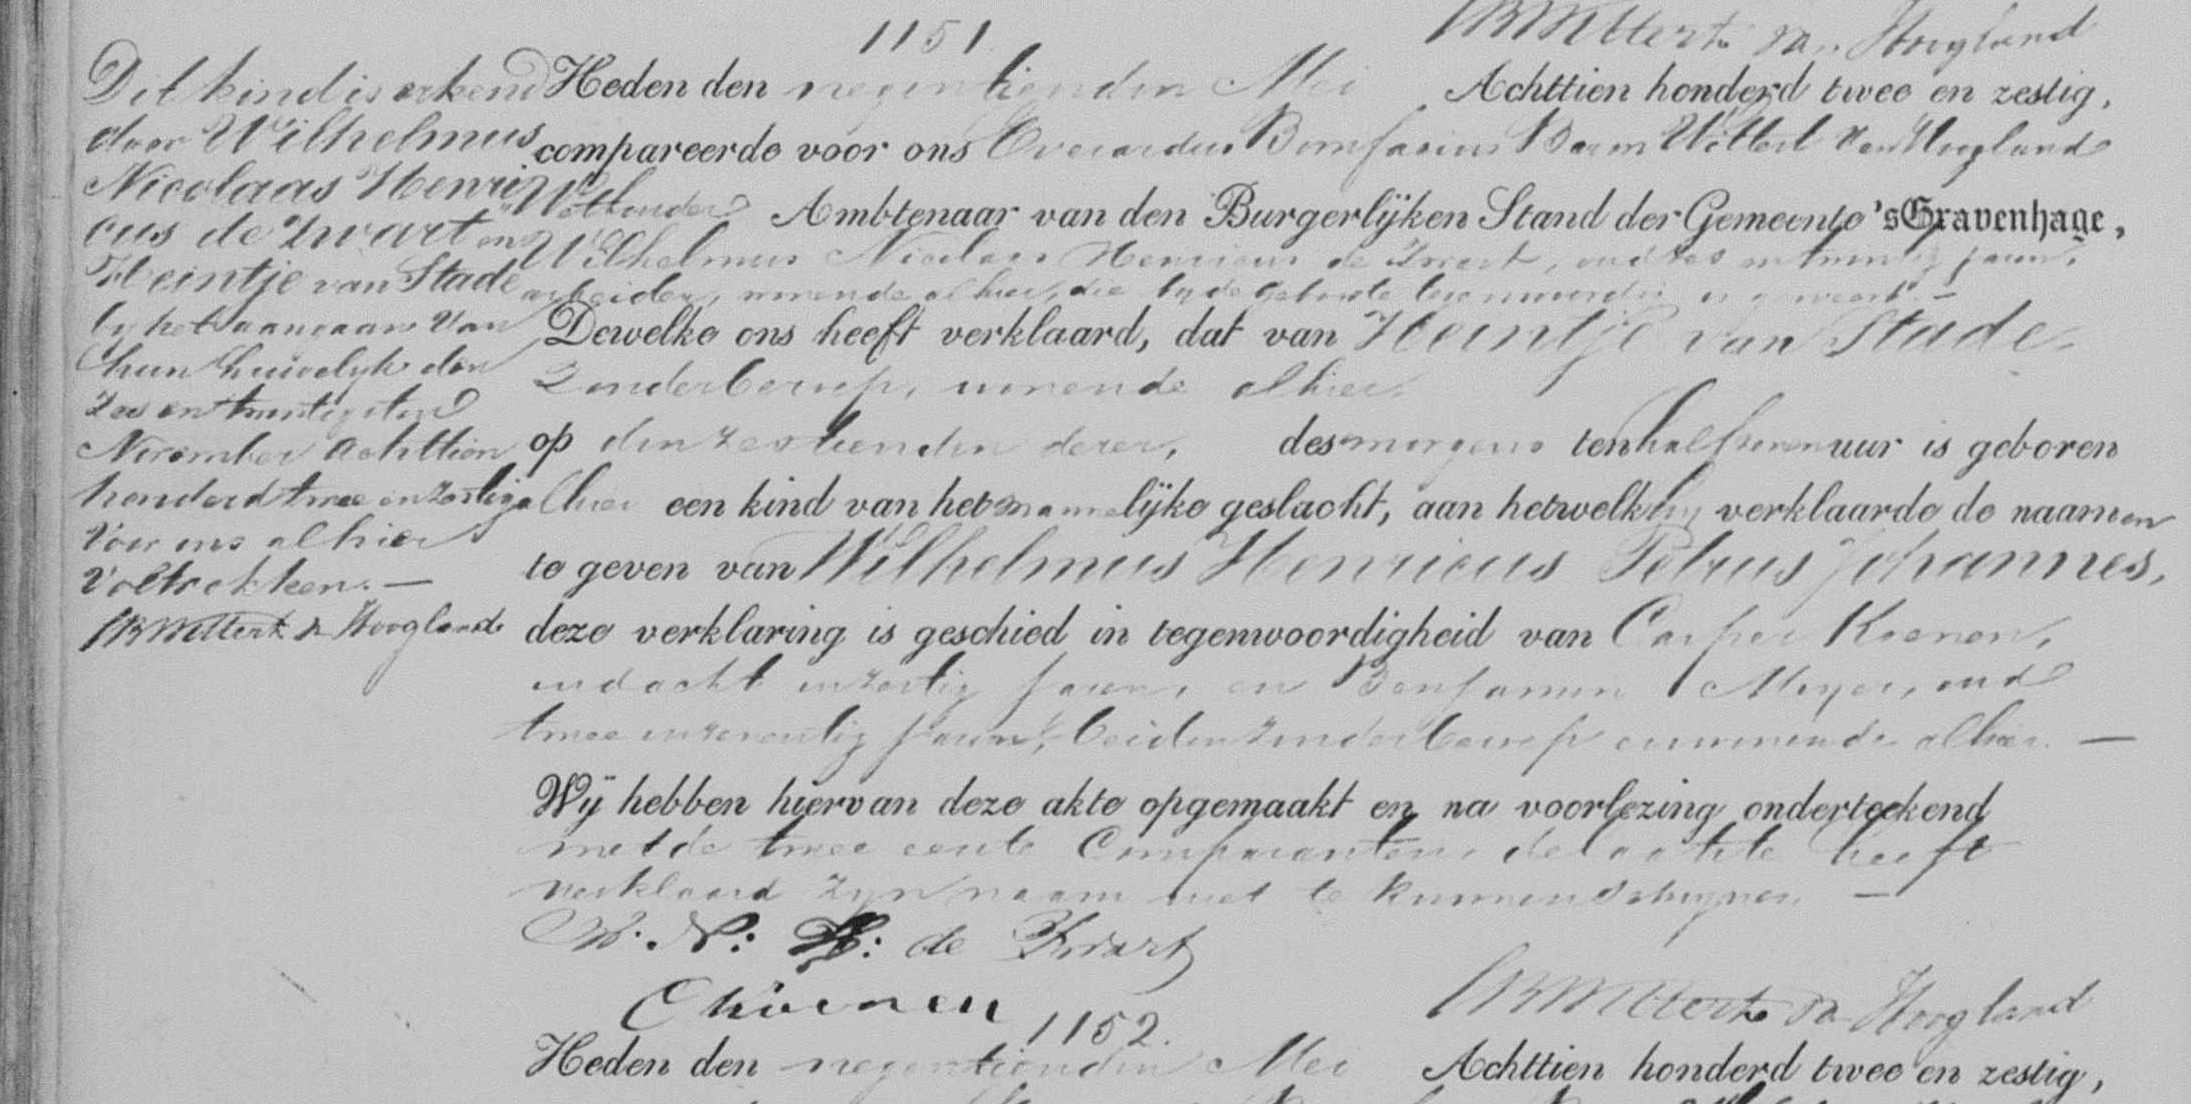 1151.
Wittert van Hoogland
Dit kind is erkend
door Wilhelmus
Nicolaas Henri
cus de Zwart en
Heintje van Stade
by het aangaan van
hun huwelyk den
zes en twintigsten
November achttien
honderd twee en zestig
voor ons alhier
voltrokken. —
Wittert v Hoogland
Heden den negentienden Mei Achttien honderd twee en zestig,
compareerde voor ons Everardus Bonifacius Baron Wittert van Hoogland
Wethouder Ambtenaar van den Burgerlijken Stand der Gemeente 'sGravenhage,
Wilhelmus Nicolaas Henricus de Zwart, oud zes en twintig jaren,
arbeider, wonende alhier, die by de geboorte tegenwoordig is geweest. —
Dewelke ons heeft verklaard, dat van Heintje van Stade,
Zonder beroep, wonende alhier,
op den zestienden dezer, des morgens ten half zeven uur is geboren
alhier een kind van het mannelijke geslacht, aan hetwelk hy verklaarde de naamen
te geven van Wilhelmus Henricus Petrus Johannes,
deze verklaring is geschied in tegenwoordigheid van Casper Koenen,
oud acht en zestig jaren, en Benjamin Meyer, oud
twee en zeventig jaren, beiden zonder beroep en wonende alhier. —
Wij hebben hiervan deze akte opgemaakt en na voorlezing onderteekend
met de twee eerste Comparanten, de laatste heeft
verklaard zyn naam niet te kunnen schryven. —
W. N: H: de Zwart
C Koenen
Wittert van Hoogland
1152.
Heden den negentienden Mei Achttien honderd twee en zestig,